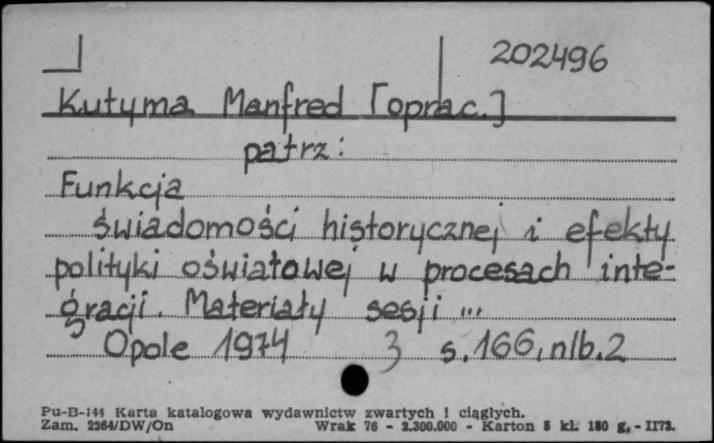 202496
Kutyma Manfred [oprac.]
patrz:
Funkcja
świadomości historycznej i efekty
polityki oświatowej w procesach inte-
gracji. Materiały sesji ...
Opole 1974 3 s. 166, nlb. 2
Pu-B-144 Karta katalogowa wydawnictw zwartych i ciągłych.
Zam. 2264/DW/On Wrak 76 - 2.300.000 - Karton 8 kl. 180 g. - II73.